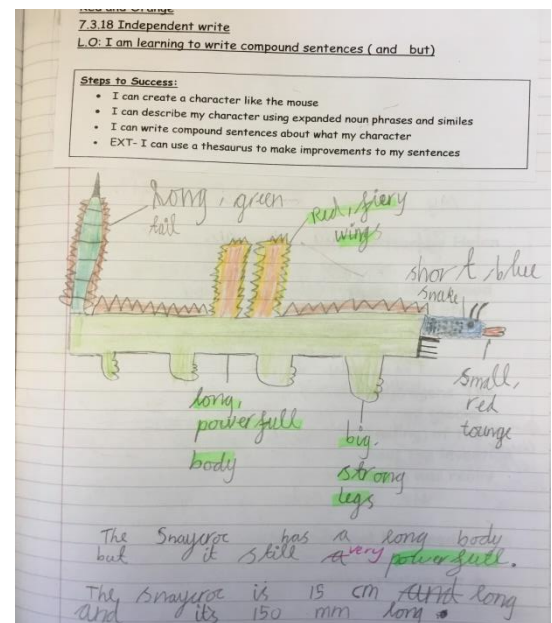 Red and Orange
7.3.18 Independent write
L.O: I am learning to write compound sentences ( and but)
Steps to Success:
• I can create a character like the mouse
• I can describe my character using expanded noun phrases and similes
• I can write compound sentences about what my character
• EXT- I can use a thesaurus to make improvements to my sentences
Long, green
tail
Red, fiery
wings
short blue
snake
small,
red
tounge
long,
powerfull
body
big,
strong
legs
The Snaycroc has a long body
but it still a very powerfull.
The Snaycroc is 15 cm and long
and its 150 mm long.